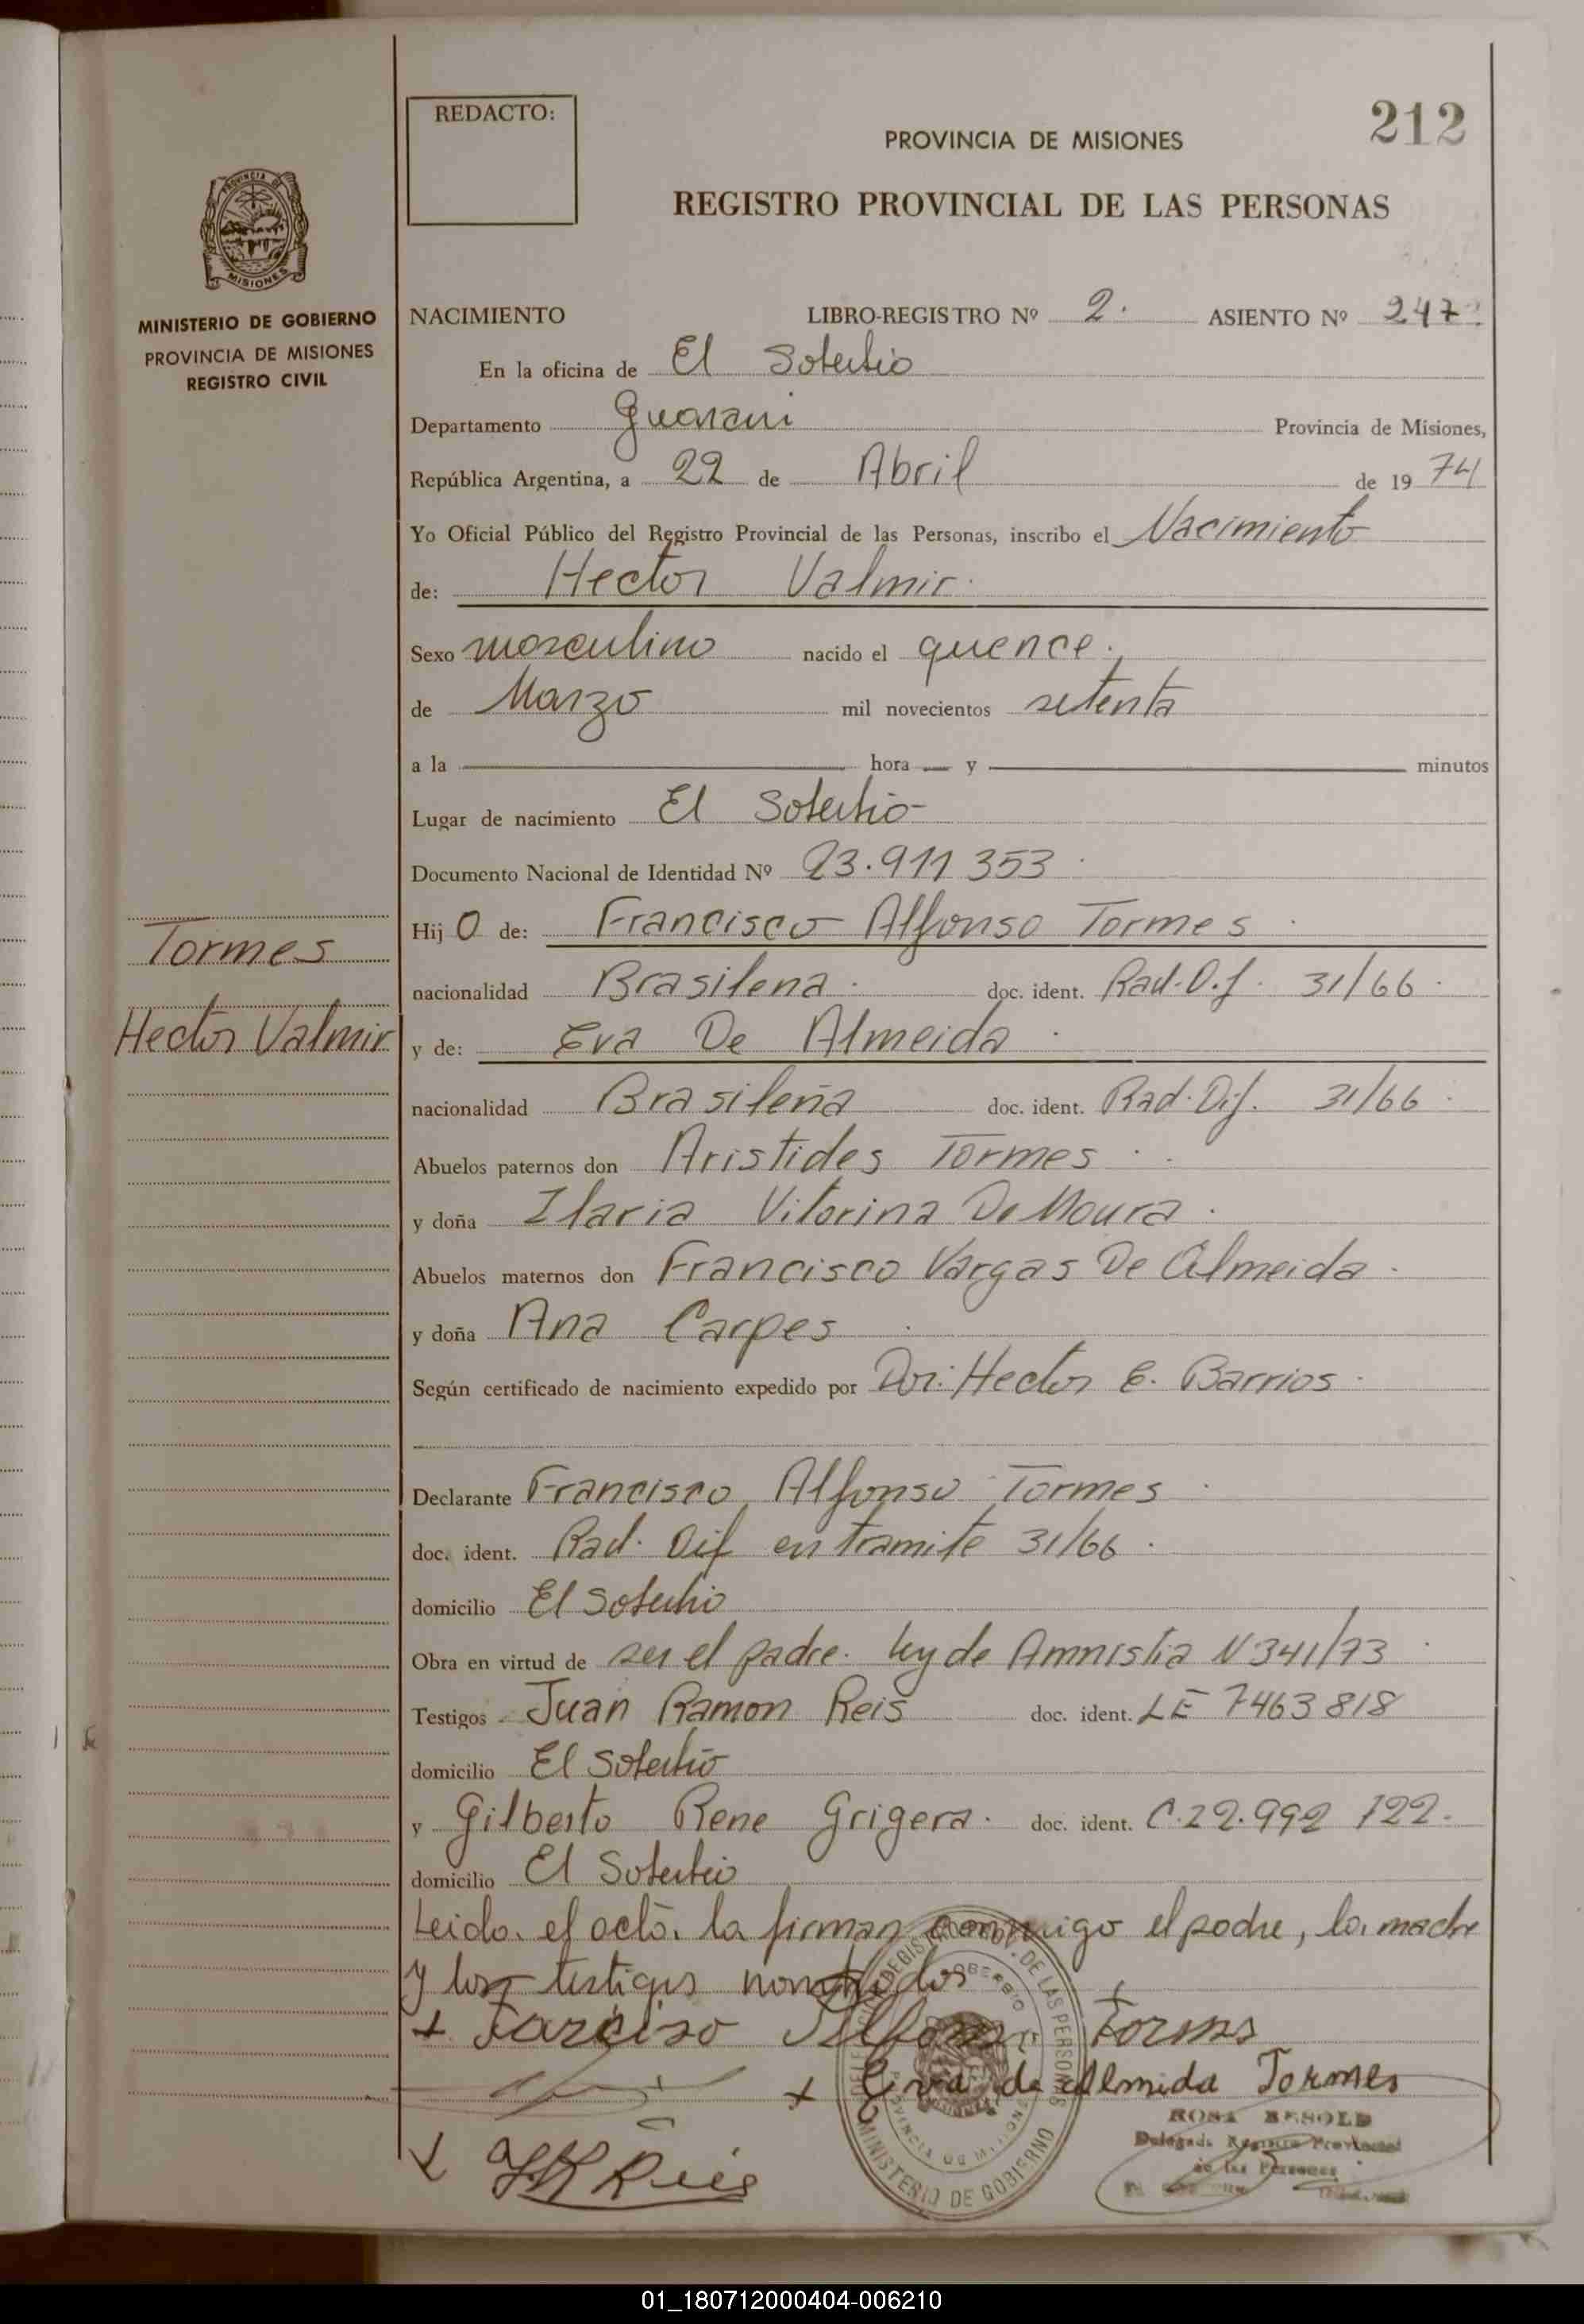 212
REDACTO:
PROVINCIA DE MISIONES
REGISTRO PROVINCIAL DE LAS PERSONAS
PROVINCIA DE
MISIONES
MINISTERIO DE GOBIERNO
PROVINCIA DE MISIONES
REGISTRO CIVIL
NACIMIENTO LIBRO-REGISTRO Nº 2. ASIENTO Nº 247
En la oficina de El Soberbio
Departamento Guarani Provincia de Misiones,
República Argentina, a 22 de Abril de 1974
Yo Oficial Público del Registro Provincial de las Personas, inscribo el Nacimiento
de: Hector Valmir.
Sexo masculino nacido el quence.
de Marzo mil novecientos setenta
a la hora y minutos
Lugar de nacimiento El Soberbio
Documento Nacional de Identidad Nº 23.911 353
Hijo de: Francisco Alfonso Tormes
Tormes
nacionalidad Brasilena. doc. ident. Rad. D.f. 31/66
Hector Valmir
y de: Eva De Almeida
nacionalidad Brasileña doc. ident. Rad. Dif. 31/66
Abuelos paternos don Aristides Tormes
y doña Ilaria Vitorina De Moura
Abuelos maternos don Francisco Vargas De Almeida
y doña Ana Carpes
Según certificado de nacimiento expedido por Dor: Hector E. Barrios
Declarante Francisco Alfonso Tormes
doc. ident. Rad. Dif en tramite 31/66
domicilio El Soberbio
Obra en virtud de ser el padre. ley de Amnistia N 341/73
Testigos Juan Ramon Reis doc. ident. LE 7463818
domicilio El Soberbio
y Gilberto Rene Grigera. doc. ident. C.22.992 122.
domicilio El Soberbio
Leido el acto la firman conmigo el padre, la madre
y los testigos nombrados
+ Alfonso Torms
+ Eva de Almida Tormes
MINISTERIO DE GOBIERNO
PROVINCIA DE MISIONES
ROSA BESOLD
Delegada Registro Provincial
de las Personas
JR Reis
01_180712000404-006210